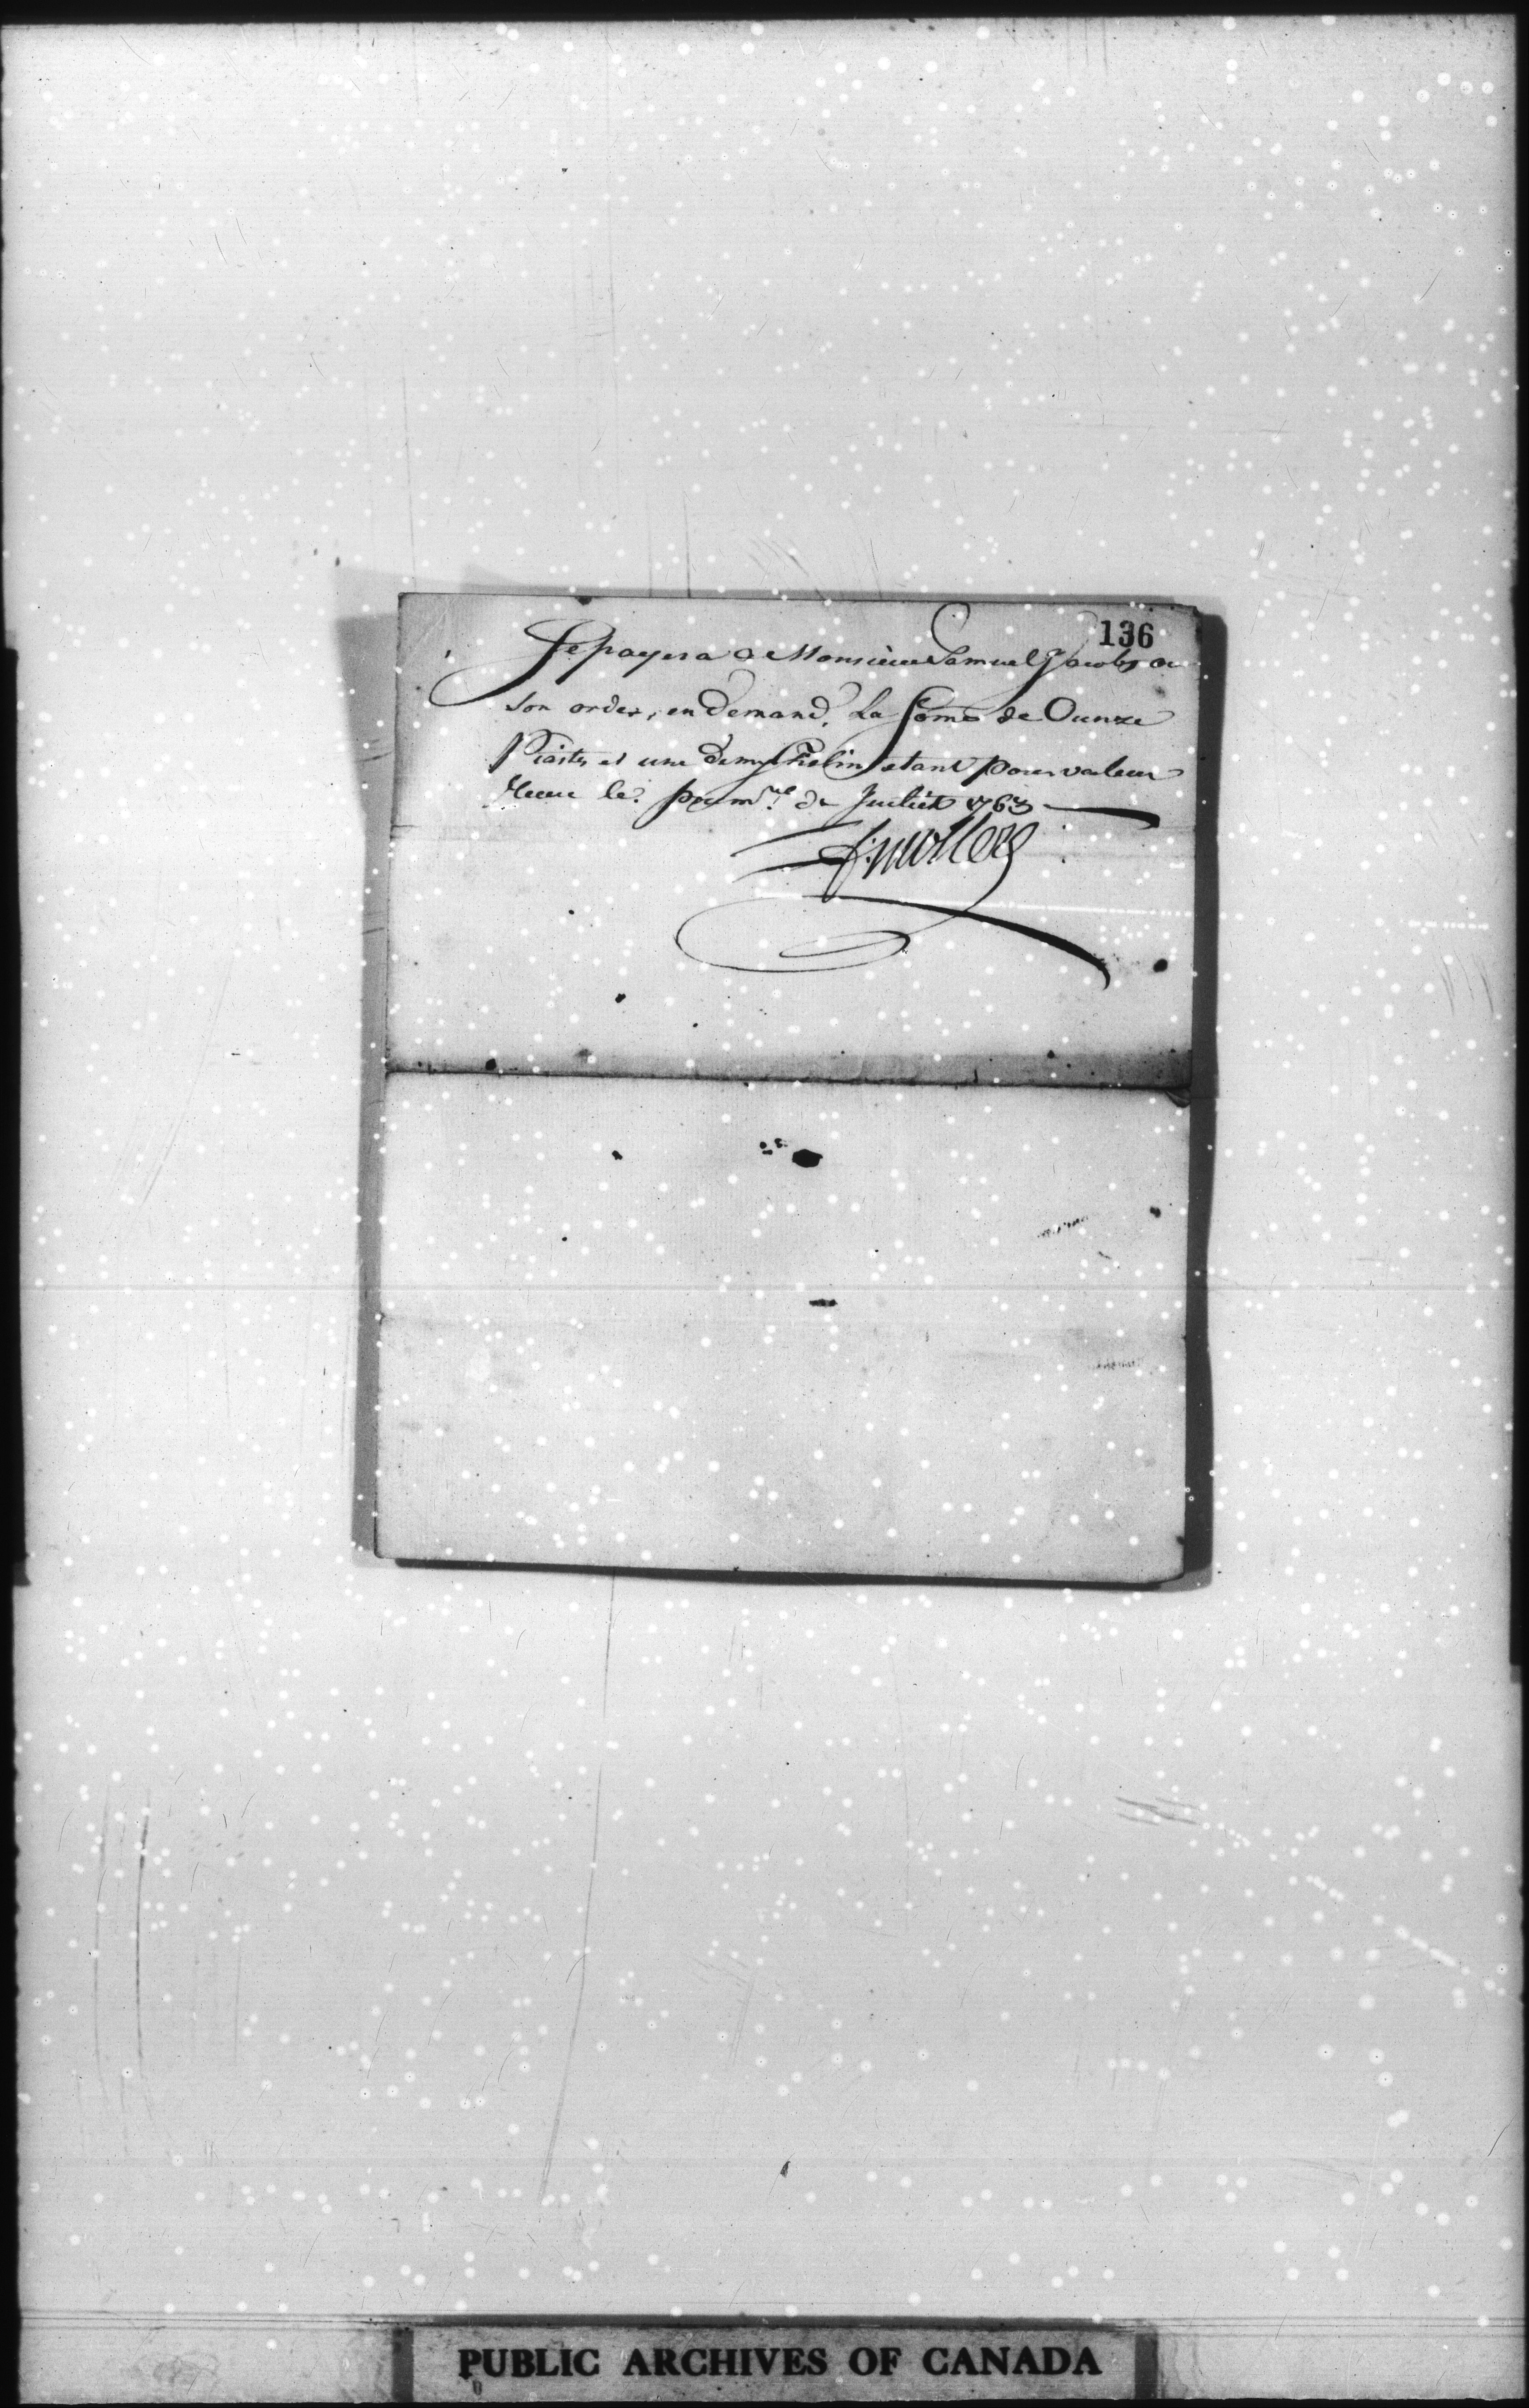 136
Je payera a Monsieur Samuel Jacobs ou
son order, en Demand, La Some de Ounze
Piastres et une demy Chelin etant pour valeur
Recue le premre de Juliet 1763
PUBLIC ARCHIVES OF CANADA